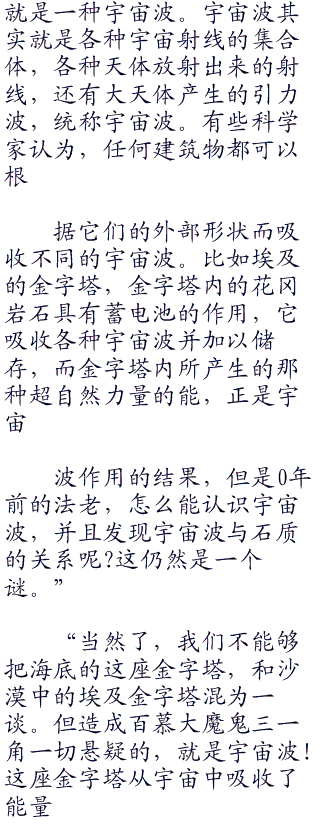 就是一种宇宙波。宇宙波其
实就是各种宇宙射线的集合
体，各种天体放射出来的射
线，还有大天体产生的引力
波，统称宇宙波。有些科学
家认为，任何建筑物都可以
根
据它们的外部形状而吸
收不同的宇宙波。比如埃及
的金字塔，金字塔内的花冈
岩石具有蓄电池的作用，它
吸收各种宇宙波并加以储
存，而金字塔内所产生的那
种超自然力量的能，正是宇
宙
波作用的结果，但是0年
前的法老，怎么能认识宇宙
波，并且发现宇宙波与石质
的关系呢?这仍然是一个
谜。”
“当然了，我们不能够
把海底的这座金字塔，和沙
漠中的埃及金字塔混为一
谈。但造成百慕大魔鬼三一
角一切悬疑的，就是宇宙波!
这座金字塔从宇宙中吸收了
能量